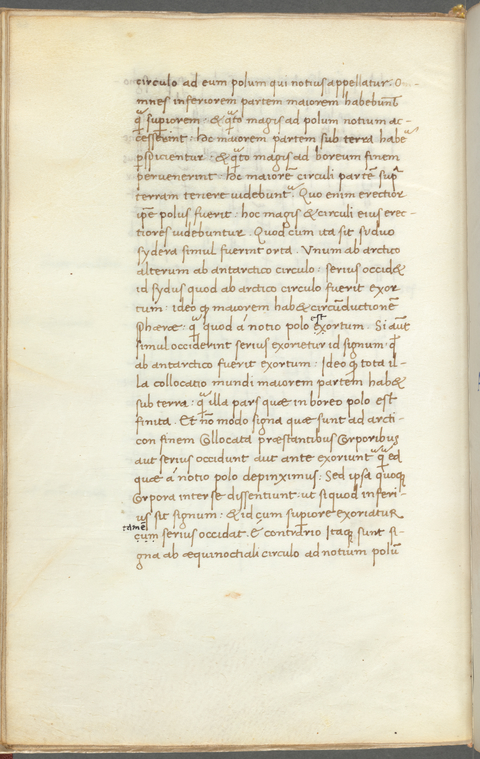 circulo ad eum polum qui notius appellatur. O-
mnes inferiorem partem maiorem habebunt
q̃ supiorem: & q̃to magis ad polum notium ac-
cesserint: hoc maiorem partem sub terra habe
pspicientur: & q̃to magis ad boreum finem
pervenerint: hoc maiorẽ circuli partẽ supra
terram tenere videbunt. Quo enim erectior
ipẽ polus fuerit: hoc magis & circuli eius erec-
tiores videbuntur. Quod cum ita sit si duo
sydera simul fuerint orta. Vnum ab arctico
alterum ab antarctico circulo: serius occid&
id sydus quod ab arctico circulo fuerit exor
tum: ideo qđ maiorem hab& circũductionẽ
sphæræ: q̃ quod á notio polo est exortum. Si aũt
simul occiderint serius exorietur id signum: q̃
ab antarctico fuerit exortum: Ideo q̃ tota il-
la collocatio mundi maiorem partem hab&
sub terra: q̃ illa pars quæ in boreo polo est
finita. Et nõ modo signa quæ sunt ad arcti-
con finem collocata præstantibus corporibus
aut serius occidunt aut ante exoriunt q̃ ea
quæ á notio polo depinximus: Sed ipsa quoq;
corpora inter se dissentiunt ut siquod inferi-
us sit signum: & id cum supiore exoriatur
tamẽ cum serius occidat. E contrario Itaq; sunt si-
gna ab æquinoctiali circulo ad notium polũ